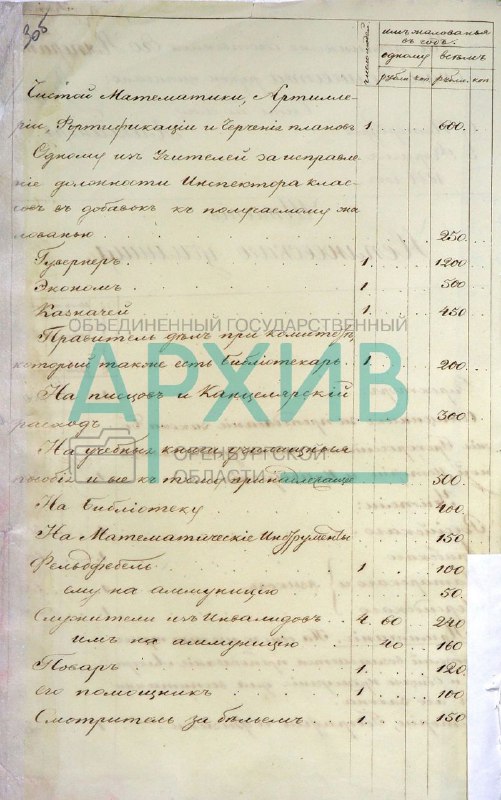 305
число людей
имъ жалованья
въ годъ.
одному всѣмъ
рубли коп рубли. коп
Чистой Математики, Артилле-
ріи, Фортификаціи и Черченія плановъ 1 600.
Одному изъ Учителей за исправле-
ніе должности Инспектора клас-
совъ въ добавокъ къ получаемому жа-
лованью 250.
Гувернеръ 1. 1200
Экономъ. 1. 500
Казначей 1. 450
ОБЪЕДИНЕННЫЙ ГОСУДАРСТВЕННЫЙ
Правитель дѣлъ при Комитетѣ,
который также есть библіотекарь 1. 200.
АРХИВ
На писцовъ и Канцелярскій
расходъ 300.
На учебныя книги, училищныя
пособія и все къ тому принадлежащее 500.
ОРЕНБУРГСКОЙ
ОБЛАСТИ
На Библіотеку 400.
На Математическіе Инструменты 150
Фельдфебель 1 100
ему на аммуницію 50.
Служители изъ Инвалидовъ 4. 60 240
имъ на аммуницію 40 160
Поваръ 1. 120
его помощникъ 1 100
Смотритель за бѣльемъ 1. 150